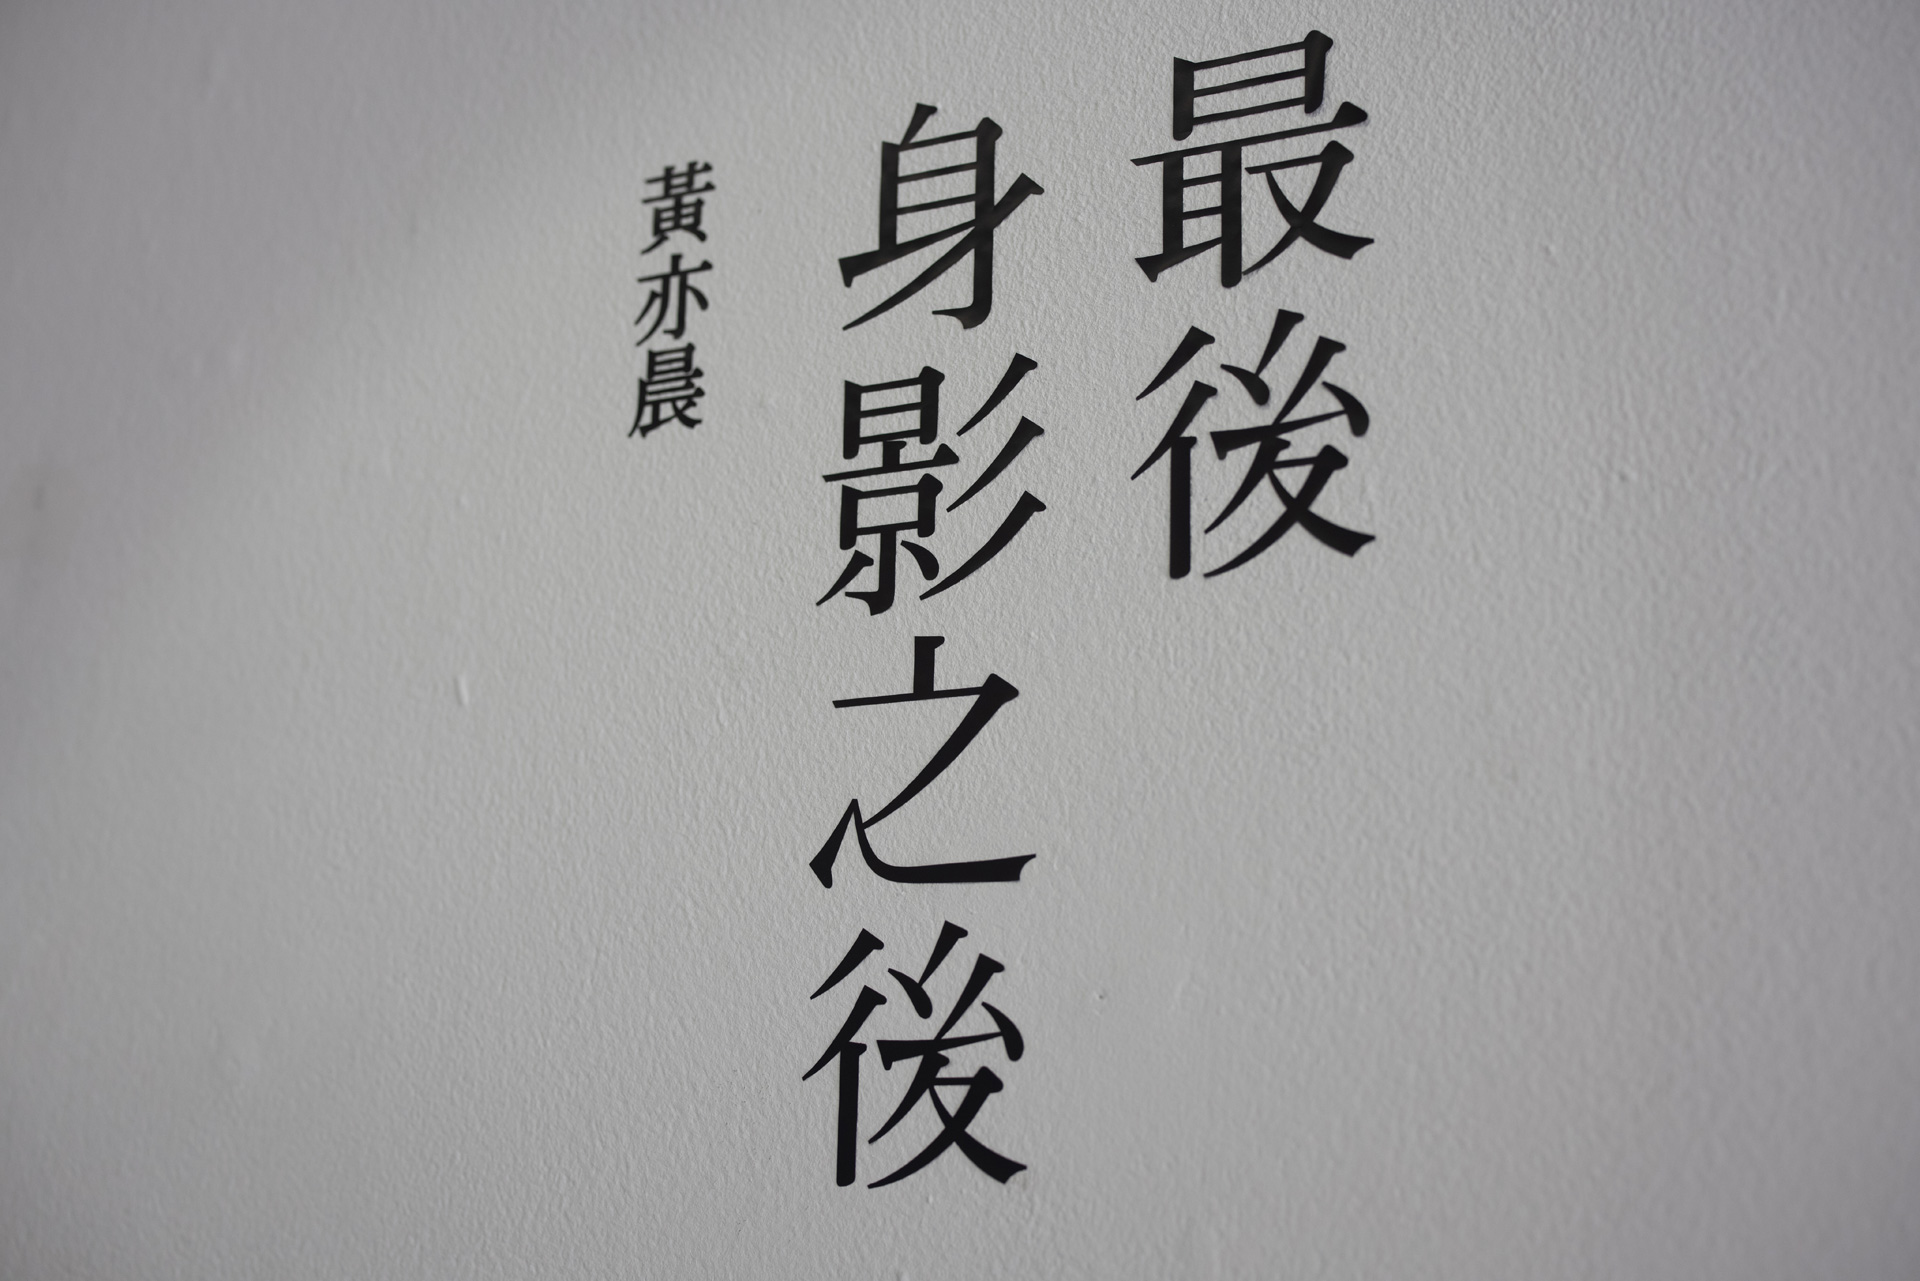 最後
身影之後
黃亦晨